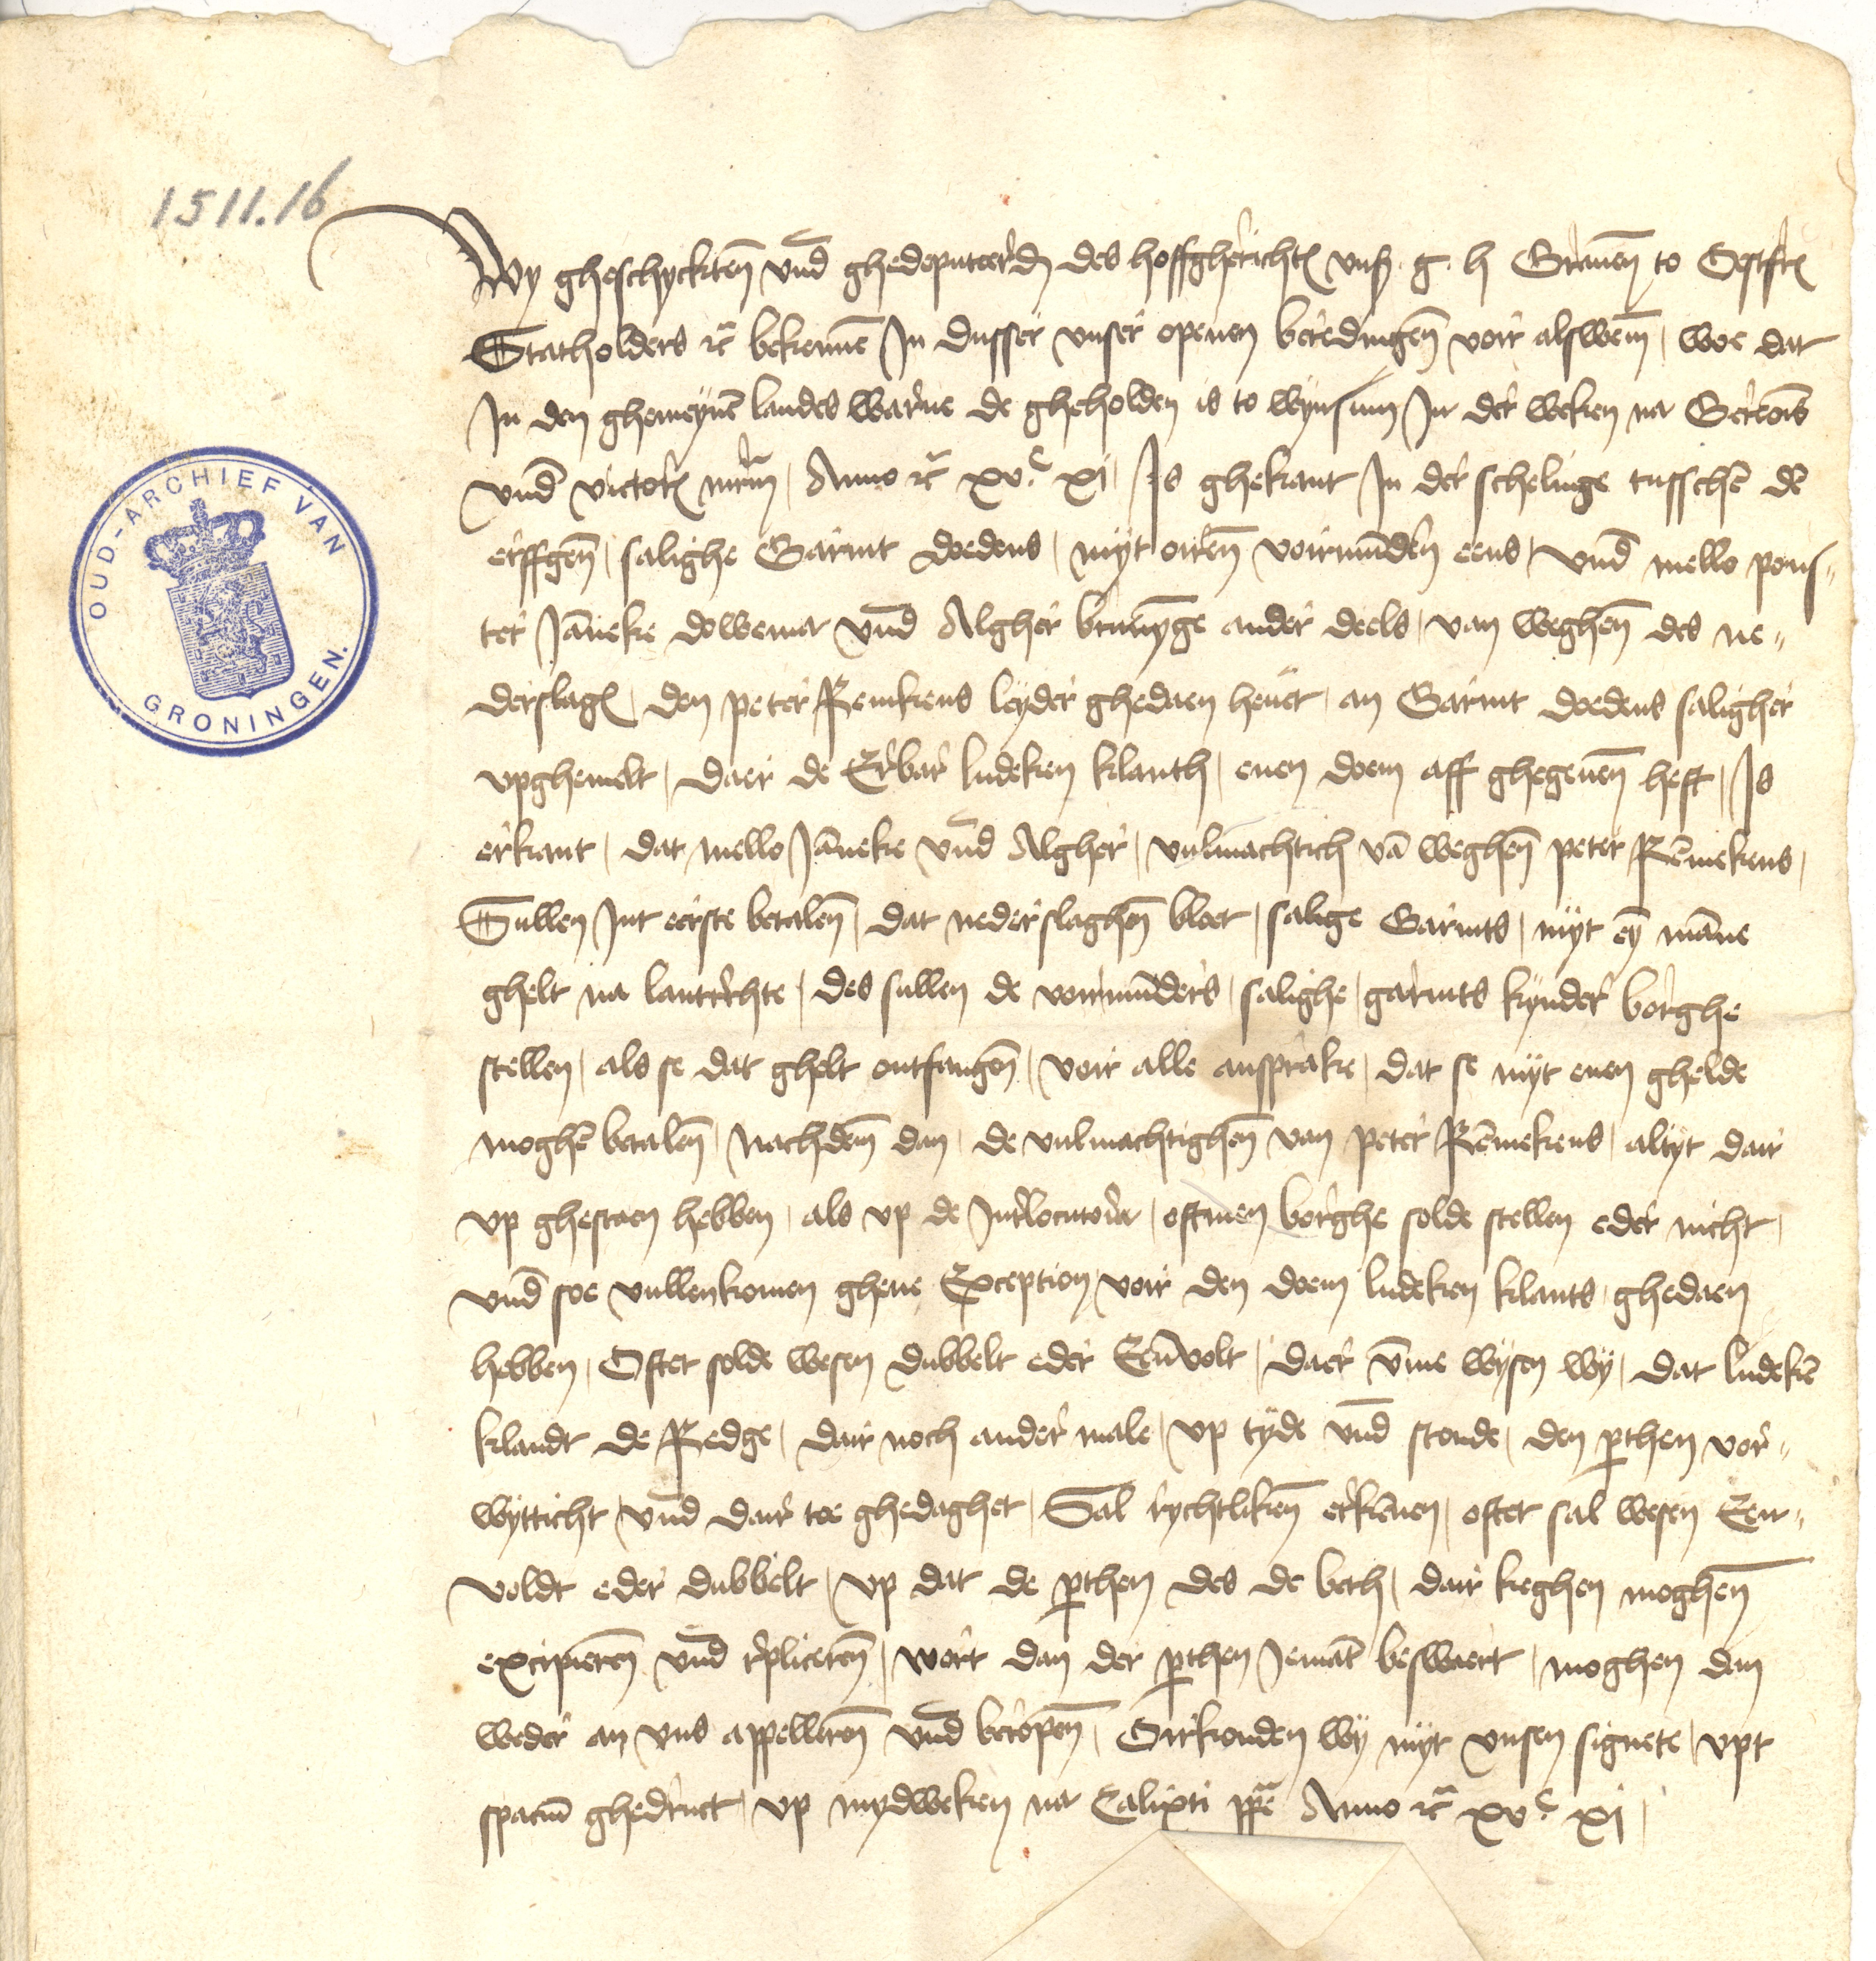 1511.16
OUD-ARCHIEF VAN
GRONINGEN.
Wy gheschyckten vnd ghedeputeerdn des hoffgherichts vnss g. h Grauen to Oestfr
Statholders etc bekennen In dusser vnser openen beredingen voir alswem, woe dat
In den ghemeynen landes warue de gheholden is to wynsum In der weken na Gereons
vnd victors mrm, Anno etc xvc xi, Is ghekant In der schelinge tusschen de
erffgen, salighe Garmt doedens, myt oiren voirmunderen eens, vnd mello pons-
ter Janneke dowema vnd Algher bruninge ander deels, van weghen des ne-
derslags, den peter Remkens leyder ghedaen heuet, an Garmt doedens saligher
vpghemelt, daer de Erbar ludeken klanth, enen doem aff ghegeuen heft, Is
erkant, dat mello Janneke vnd Algher, vulmachtich va weghen peter Remmekens,
Sullen Int eerste betalen, dat nederslaghen bloet, salige Garmts, myt ey manne
ghelt na lantrechte, des sullen de vormunders, salighe, garmts kynder borghe
stellen, als se dat ghelt ontfangen, voir alle ansprake, dat se myt enen ghelde
moghen betalen, Nachdem dan, de vulmachtighen van peter Remmekens, altyt dair
vp ghestaen hebben, als vp de Interlocutoria, oftmen borghe solde stellen eder nicht,
vnd soe vullenkomen ghene Exception, voir den doem ludeken klants, ghedaen
hebben, Oftet solde wesen dubbelt eder Eenvolt, daer vmme wysen wy, dat ludeken
klandt de Redge, dair noch ander male, vp tyde vnd stonde, den perthen vor-
wytticht, vnd dair toe ghedaghet, Sal rychtliken erkennen, oftet sal wesen Een-
voldt eder dubbelt, vp dat de perthen des de beth, dair keghen moghen
excipieren vnd repliceren, wort dan der perthen Iemant beswaert, moghen dan
weder an vns appelleren vnd beropen, Oirkonden wy myt vnsen signete, vpt
spacium ghedruct, vp mydweken na Calixti ppe Anno etc xvc xi,